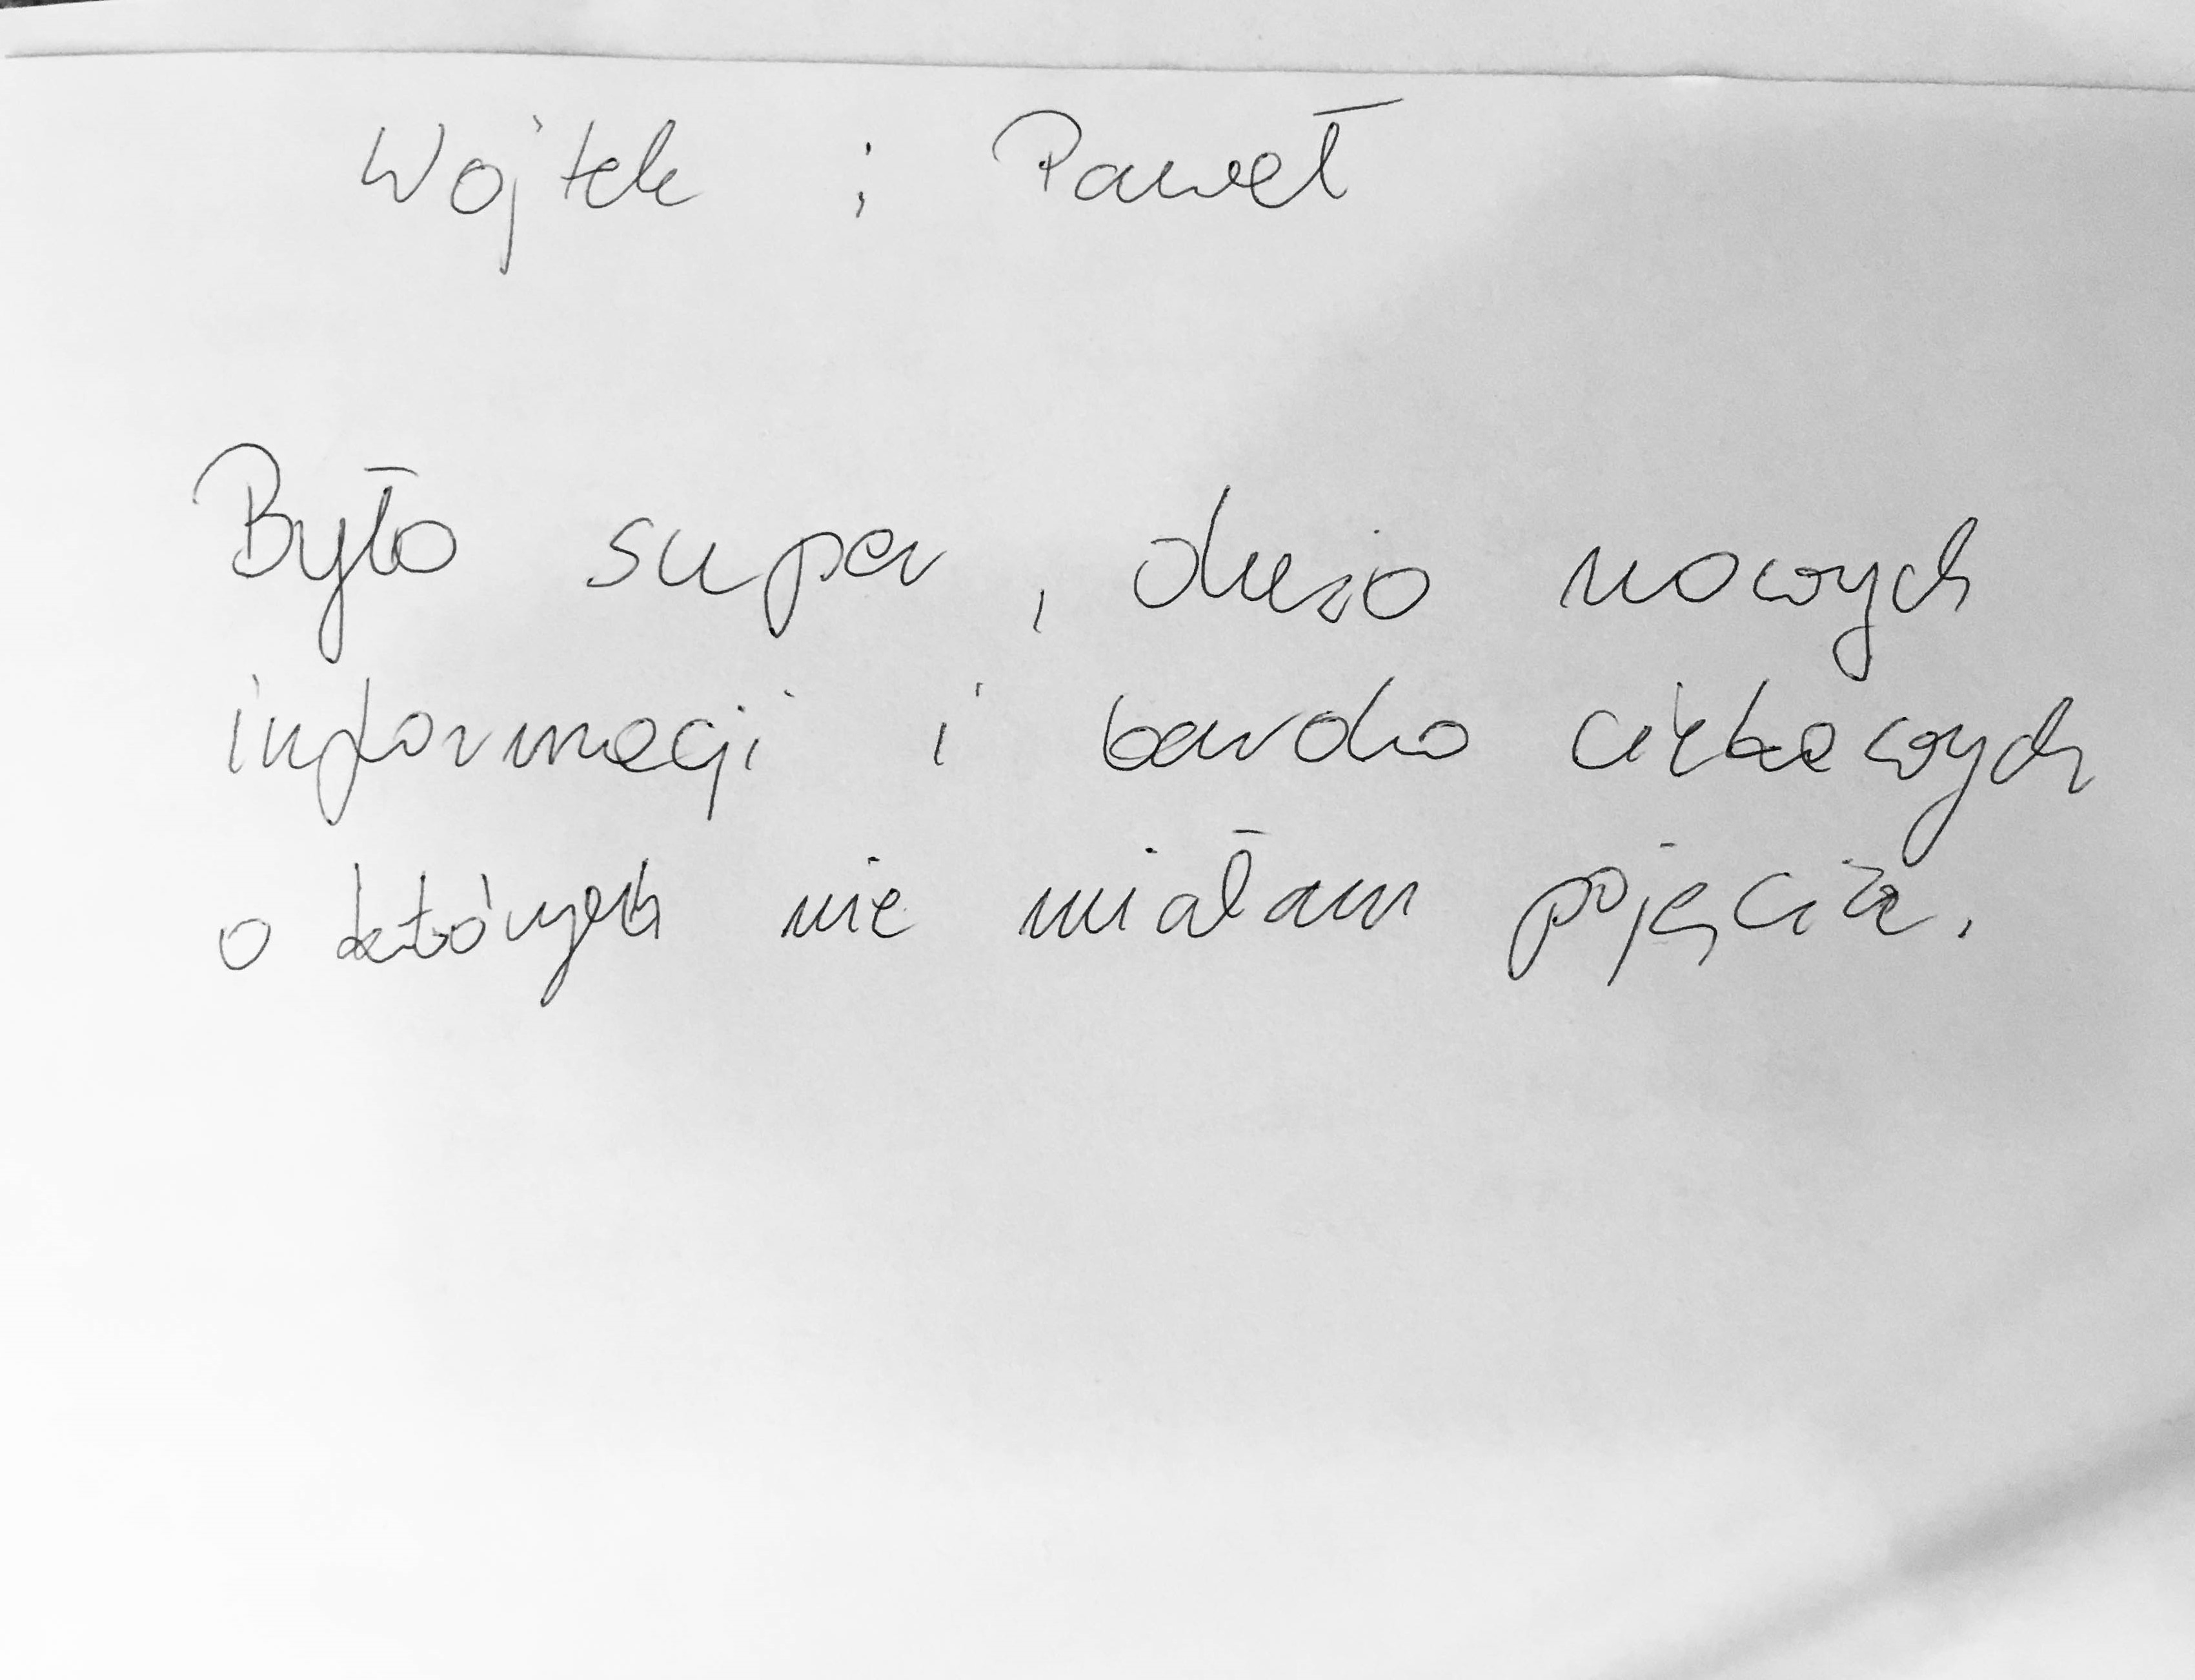 Wojtek i Paweł
Było super, dużo nowych
informacji i bardzo ciekawych
o których nie miałam pojęcia.